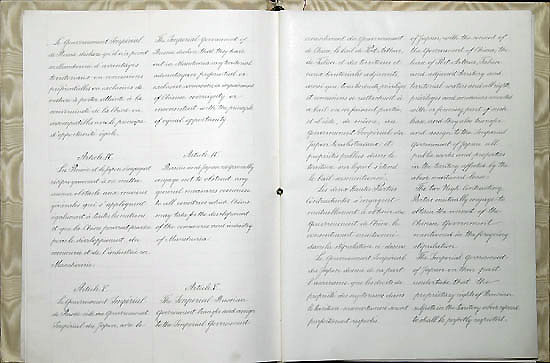 Le Gouvernement Impérial
de Russie déclare qu'il n'a point
en Mandchourie d'avantages
territoriaux ou concessions
préférentielles ou exclusives de
nature à porter atteinte à la
souveraineté de la Chine ou
incompatibles avec le principe
d'opportunité égale.
Article IV.
La Russie et le Japon s'engagent
réciproquement à ne mettre
aucun obstacle aux mesures
générales qui s'appliquent
également à toutes les nations
et que la Chine pourrait prendre
pour le développement du
commerce et de l'industrie en
Mandchourie.
Article V.
Le Gouvernement Impérial
de Russie cède au Gouvernement
Impérial du Japon, avec le
The Imperial Government of
Russia declare that they have
not in Manchuria any territorial
advantages or preferential or
exclusive concessions in impairment
of Chinese sovereignty or
inconsistent with the principle
of equal opportunity.
Article IV.
Russia and Japan reciprocally
engage not to obstruct any
general measures common
to all countries which China
may take for the development
of the commerce and industry
of Manchuria.
Article V.
The Imperial Russian
Government transfer and assign
to the Imperial Government
consentement du Gouvernement
de Chine, le bail de Port Arthur,
de Talien et des territoires et
eaux territoriales adjacents,
ainsi que tous les droits, privilèges
et concessions se rattachant à
ce bail ou en faisant partie,
et il cède, de même, au
Gouvernement Impérial du
Japon tous les travaux et
propriétés publics dans le
territoire sur lequel s'étend
le bail susmentionné.
Les deux Hautes Parties
Contractantes s'engagent
mutuellement à obtenir du
Gouvernement de Chine le
consentement mentionné
dans la stipulation ci-dessus.
Le Gouvernement Impérial
du Japon donne de sa part
l'assurance que les droits de
propriété des sujets russes dans
le territoire susmentionné seront
parfaitement respectés.
of Japan, with the consent of
the Government of China, the
lease of Port Arthur, Talien
and adjacent territory and
territorial waters and all rights,
privileges and concessions connected
with or forming part of such
lease, and they also transfer
and assign to the Imperial
Government of Japan all
public works and properties
in the territory affected by the
above mentioned lease.
The two High Contracting
Parties mutually engage to
obtain the consent of the
Chinese Government
mentioned in the foregoing
stipulation.
The Imperial Government
of Japan on their part
undertake that the
proprietary rights of Russian
subjects in the territory above referred
to shall be perfectly respected.